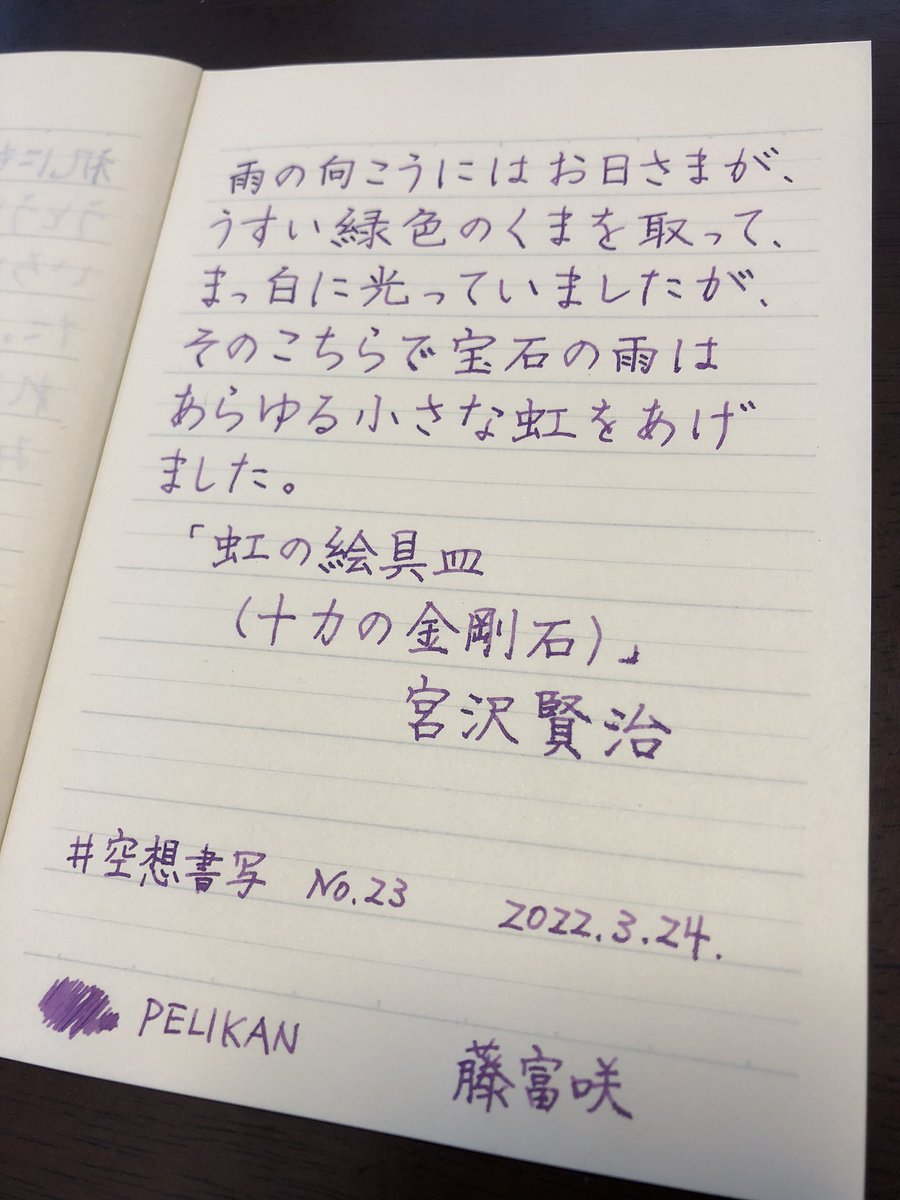 雨の向こうにはお日さまが、
うすい緑色のくまを取って、
まっ白に光っていましたが、
そのこちらで宝石の雨は
あらゆる小さな虹をあげ
ました。
「虹の絵具皿
(十力の金剛石)」
宮沢賢治
#空想書写 No.23 2022.3.24.
PELIKAN
藤富咲